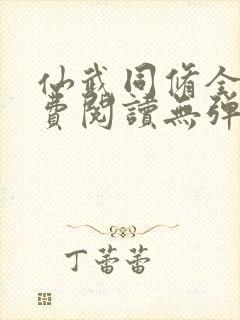 仙武同脩全
費閱讀無彈
丁蕾蕾